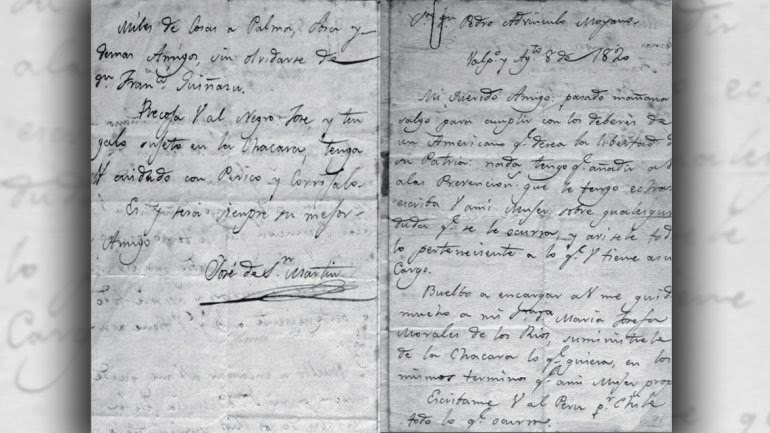 Miles de Cosas a Palma, Sosa y
demas Amigos, sin olvidarse de
Dn. Franco.
Recoja V al Negro José, y ten
galo sujeto en la Chacara, tenga
V cuidado con Perico y Corrijalo
Es y será siempre su mejor
Amigo
José de Sn. Martin
Sor. Dn. Pedro Advinculo Moyano
Valpo. y Agto. 8 de 1820
Mi Querido Amigo: pasado mañana
salgo para cumplir con los deberes de
un Americano q. desea la libertad d
su Patria: nada tengo q. añadir a
a las Prevencion. que le tengo echas
escriba V a mi Muger sobre qualesqui
duda q. se le ocurra, y avisele tod
lo perteneciente a lo q. V tiene a su
Cargo.
Buelbo a encargar a V me quid
mucho a mi Maria Josefa
Morales de los Rios, suministrele
de la Chacara lo q. quiera, en los
mismos terminos q. a mi Muger
Escribame V al Peru pr. Chile
todo lo q. ocurra.